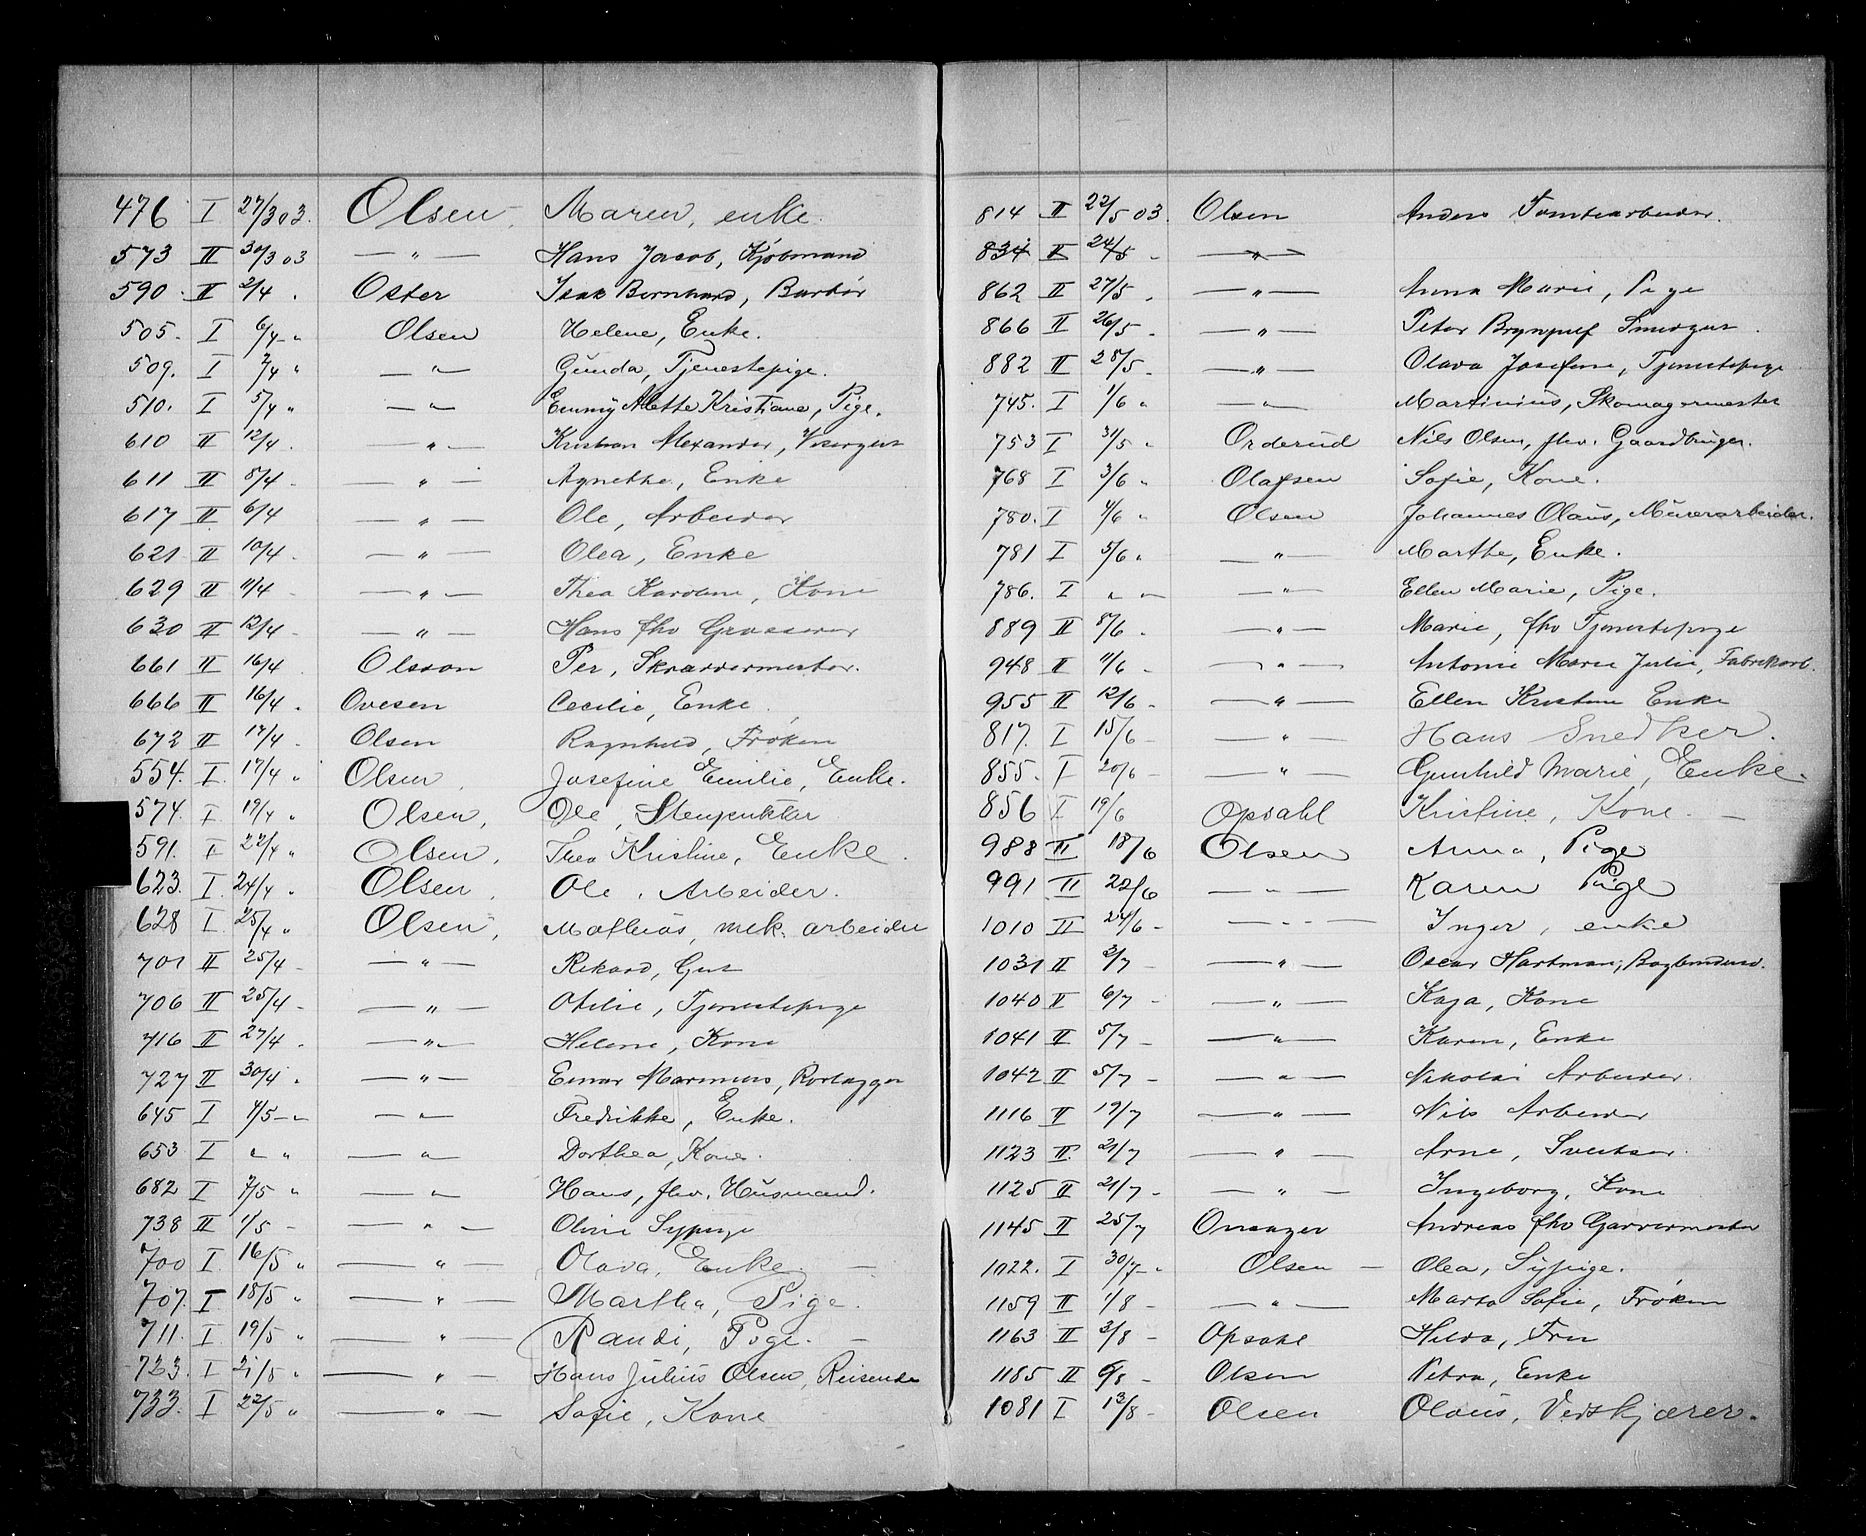 476 I 27/3 03. Olsen, Maren, enke.
573 II 30/3 03 — " — Hans Jacob, Kjøbmand
590 II 2/4 . Oster Isak Bernhard, Barbér
505. I 6/4 - " Olsen Helene, Enke.
509. I 7/4 " — " — Gunda, Tjenestepige.
510. I 5/4 " — " — Emmy Alette Kristiane, Pige.
610 II 12/4 . — " — Kristian Alexander, Visergut
611 II 8/4 - — " — Agnethe, Enke
617 II 6/4 — " — Ole, Arbeider
621 II 10/4 - — " — Olea, Enke
629 II 11/4 - — " — Thea Karoline, Kone
630 II 12/4 - — " — Hans fhv Grosserer
661 II 16/4 . Olsson Per, Skræddermester.
666 II 16/4 . Ovesen Cecilie, Enke
672 II 17/4 - Olsen Ragnhild, Frøken
554. I. 17/4 " Olsen, Josefine Emilie, Enke.
574. I. 19/4 " Olsen, Ole,
591. I 22/4 " Olsen, Thea Kristine, Enke.
623. I. 24/4 " Olsen, Ole, Arbeider.
628 I. 25/4 " Olsen, Mathias, mek. arbeider
701 II 25/4 - — " — Rikard, Gut
706 II 25/4 - — " — Otilie, Tjenestepige
716 II 27/4 . — " — Helene, Kone
727 II 30/4 . — " — Einar Marinius, Rørlægger
645 I 4/5 - " — " — Fredrikke, Enke.
653 I " " — " — Dorthea, Kone.
682 I 7/5 " — " — Hans, fhv. Husmand.
738 II 1/5 - — " — Oline Sypige
700 I. 16/5 " — " — Olava, Enke. —
707. I 18/5 " — " — Martha, Pige.
711. I. 19/5 " — " — Randi, Pige. —
723. I 21/5 " — " — Hans Julius Olsen, Reisende
733. I 22/5 " — " — Sofie, Kone
814 II 22/5 03. Olsen Anders Tomtearbeider.
834 II 24/5 - — " —
862 II 27/5 . — " — Anna Marie, Pige
866 II 26/5 - — " — Peter Brynjulf Smedgut.
882 II 28/5 - — " — Olava Josefine, Tjenestepige
745. I 1/6 " — " — Martinius, Skomagermester
753 I 31/5 " Orderud Nils Olsen, fhv. Gaardbruger.
768 I 3/6 " Olafsen Sofie, Kone.
780. I 4/6 " Olsen Johannes Olaus, Murerarbeider.
781 I 5/6 " — " — Marthe, Enke.
786. I " " — " — Ellen Marie, Pige.
889 II 8/6 . — " — Marie, fhv Tjenestepige
948 II 11/6 - — " — Antonie Marie Julie, Fabrikarb.
955 II 12/6 - — " — Ellen Kristine Enke
817. I 15/6 - — " — Hans Snedker.
855. I 20/6 - — " — Gunhild Marie, Enke.
856 I 19/6 Opsahl Kristine, Kone. —
988 II 18/6 Olsen Anna, Pige
991 II 22/6 — " — Karen Pige
1010 II 24/6 - — " — Inger, enke
1031 II 2/7 - — " — Oscar Hartman, Bogbindersv.
1040 II 6/7 - — " — Kaja, Kone
1041 II 5/7 - — " — Karen, Enke
1042 II 5/7 - — " — Nikolai Arbeider.
1116 II 19/7 — " — Nils Arbeider
1123 II. 21/7 — " — Arne, Sveitser.
1125 II 21/7 - — " — Ingeborg, Kone
1145 II 25/7 Onsager Andreas fhv Garvermester
1022. I 30/7 - " Olsen — Olea, Sypige.
1159 II 1/8 - — " — Marta Sofie, Frøken
1163 II 3/8 - Opsahl Hilda, Fru
1185 II 6/8 - Olsen Petra, Enke
1081 I 13/8 - Olsen Olaus, Vedskjærer.